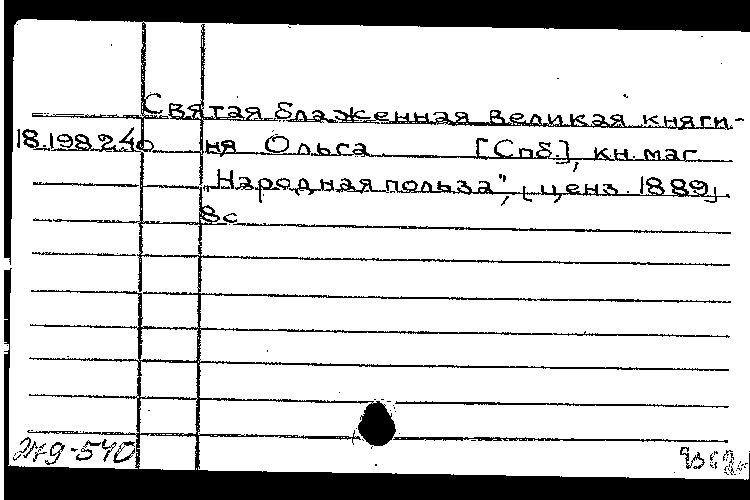 Святая блаженная великая княги-
18.198.2.40 ня Ольга [Спб.], кн. маг.
"Народная польза", [ценз. 1889]
8с
249-540